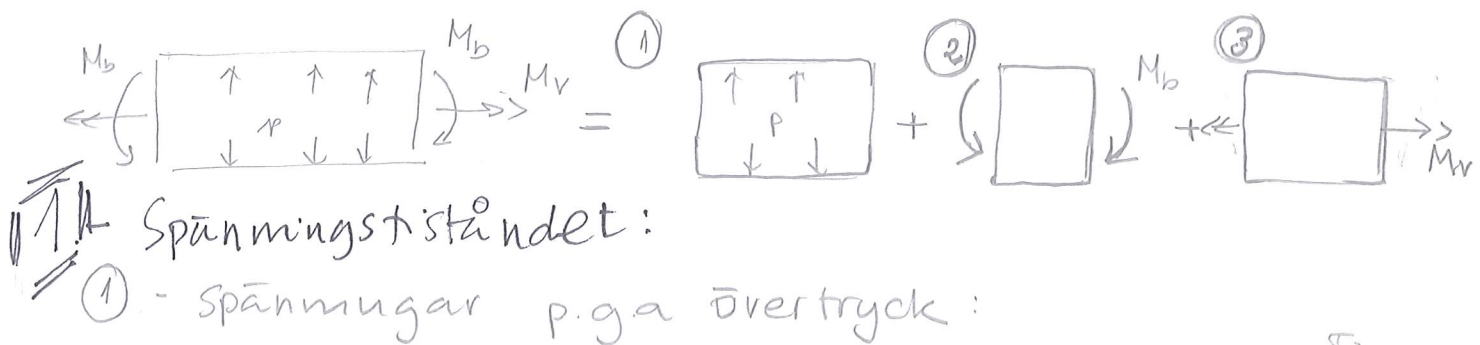 M_b M_b M_v = ① p + ② M_b + ③ M_v
p
1. Spänningstiståndet:
① - spänningar p.g.a övertryck: